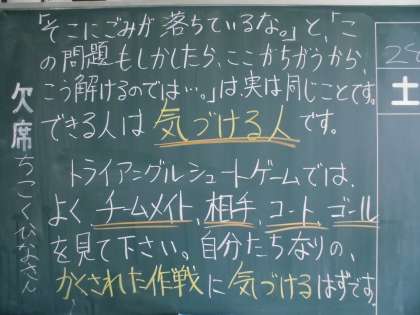 「そこにごみが落ちているな。」と、「こ
の問題もしかしたら、ここがちがうから、
こう解けるのでは…。」は、実は同じことです。
できる人は気づける人です。
トライアングルシュートゲームでは、
よく、チームメイト、相手、コート、ゴール
を見て下さい。自分たちなりの、
かくされた作戦に気づけるはずです。
欠席ちこくひなさん
土